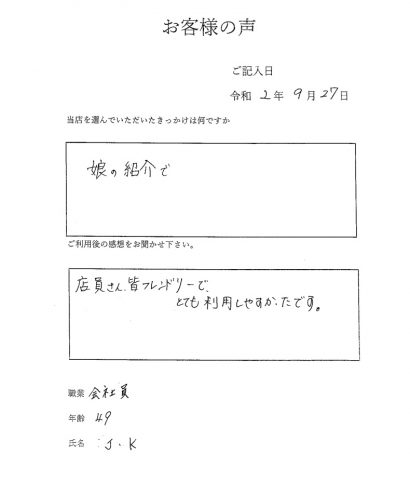 お客様の声
ご記入日
令和 2年 9月27日
当店を選んでいただいたきっかけは何ですか
娘の紹介で
ご利用後の感想をお聞かせ下さい。
店員さん、皆フレンドリーで、
とても利用しやすかったです。
職業 会社員
年齢 49
氏名 : J.K